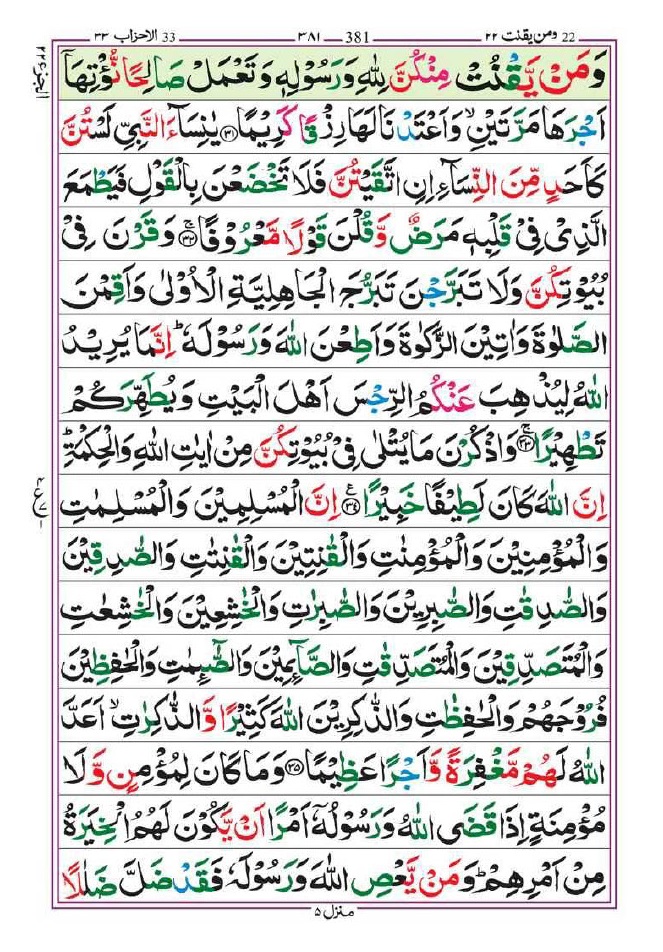 22 ومن يقنت ٢٢ 381 ٣٨١ 33 الاحزاب ٣٣
وَمَنۡ يَّقۡنُتۡ مِنۡكُنَّ لِلّٰهِ وَرَسُوۡلِهٖ وَتَعۡمَلۡ صَالِحًا نُّؤۡتِهَاۤ
اَجۡرَهَا مَرَّتَيۡنِۙ وَاَعۡتَدۡنَا لَهَا رِزۡقًا كَرِيۡمًا ﴿۳۱﴾ يٰنِسَآءَ النَّبِىِّ لَسۡتُنَّ
كَاَحَدٍ مِّنَ النِّسَآءِ اِنِ اتَّقَيۡتُنَّ فَلَا تَخۡضَعۡنَ بِالۡقَوۡلِ فَيَطۡمَعَ
الَّذِىۡ فِىۡ قَلۡبِهٖ مَرَضٌ وَّقُلۡنَ قَوۡلًا مَّعۡرُوۡفًا ۚ﴿۳۲﴾ وَقَرۡنَ فِىۡ
بُيُوۡتِكُنَّ وَلَا تَبَرَّجۡنَ تَبَرُّجَ الۡجَاهِلِيَّةِ الۡاُوۡلٰى وَاَقِمۡنَ
الصَّلٰوةَ وَاٰتِيۡنَ الزَّكٰوةَ وَاَطِعۡنَ اللّٰهَ وَرَسُوۡلَهٗؕ اِنَّمَا يُرِيۡدُ
اللّٰهُ لِيُذۡهِبَ عَنۡكُمُ الرِّجۡسَ اَهۡلَ الۡبَيۡتِ وَيُطَهِّرَكُمۡ
تَطۡهِيۡرًا ۚ﴿۳۳﴾ وَاذۡكُرۡنَ مَا يُتۡلٰى فِىۡ بُيُوۡتِكُنَّ مِنۡ اٰيٰتِ اللّٰهِ وَالۡحِكۡمَةِؕ
اِنَّ اللّٰهَ كَانَ لَطِيۡفًا خَبِيۡرًا ﴿۳۴﴾ اِنَّ الۡمُسۡلِمِيۡنَ وَالۡمُسۡلِمٰتِ
وَالۡمُؤۡمِنِيۡنَ وَالۡمُؤۡمِنٰتِ وَالۡقٰنِتِيۡنَ وَالۡقٰنِتٰتِ وَالصّٰدِقِيۡنَ
وَالصّٰدِقٰتِ وَالصّٰبِرِيۡنَ وَالصّٰبِرٰتِ وَالۡخٰشِعِيۡنَ وَالۡخٰشِعٰتِ
وَالۡمُتَصَدِّقِيۡنَ وَالۡمُتَصَدِّقٰتِ وَالصَّآئِمِيۡنَ وَالصّٰٓئِمٰتِ وَالۡحٰفِظِيۡنَ
فُرُوۡجَهُمۡ وَالۡحٰفِظٰتِ وَالذّٰكِرِيۡنَ اللّٰهَ كَثِيۡرًا وَّالذّٰكِرٰتِۙ اَعَدَّ
اللّٰهُ لَهُمۡ مَّغۡفِرَةً وَّاَجۡرًا عَظِيۡمًا ﴿۳۵﴾ وَمَا كَانَ لِمُؤۡمِنٍ وَّلَا
مُؤۡمِنَةٍ اِذَا قَضَى اللّٰهُ وَرَسُوۡلُهٗۤ اَمۡرًا اَنۡ يَّكُوۡنَ لَهُمُ الۡخِيَرَةُ
مِنۡ اَمۡرِهِمۡؕ وَمَنۡ يَّعۡصِ اللّٰهَ وَرَسُوۡلَهٗ فَقَدۡ ضَلَّ ضَلٰلًا
منزل ۵